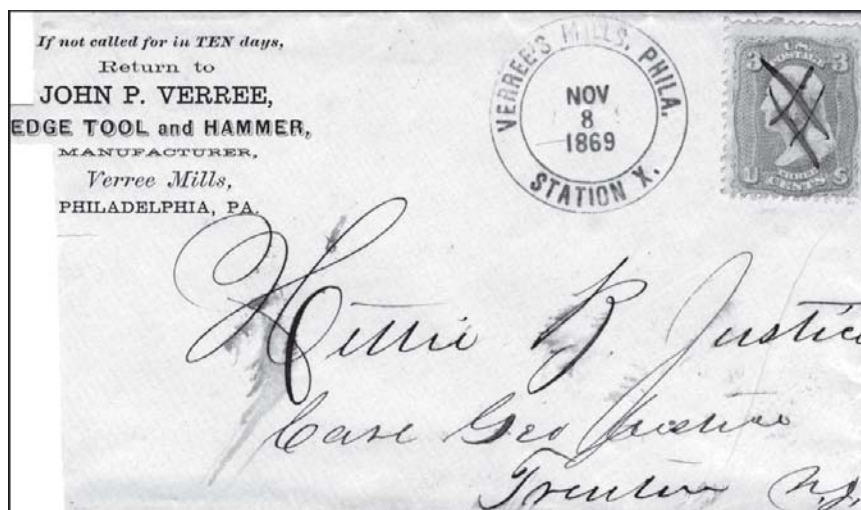 If not called for in TEN days,
Return to
JOHN P. VERREE,
EDGE TOOL and HAMMER,
MANUFACTURER,
Verree Mills,
PHILADELPHIA, PA.
VERREE'S MILLS, PHILA.
NOV
8
1869
STATION X.
U.S.
POSTAGE
3 3
THREE
U CENTS S
Hettie B. Justice
Care Geo Justice
Trenton N.J.